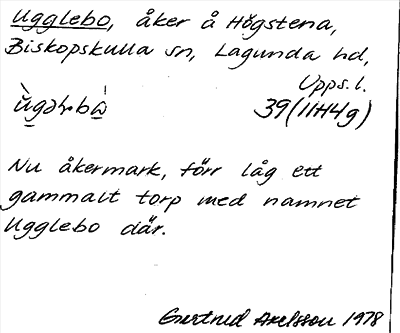 Ugglebo, åker å Högstena,
Biskopskulla sn, Lagunda hd,
Upps. l.
39 (11H4g)
Nu åkermark, förr låg ett
gammalt torp med namnet
Ugglebo där.
Gertrud Axelsson 1978